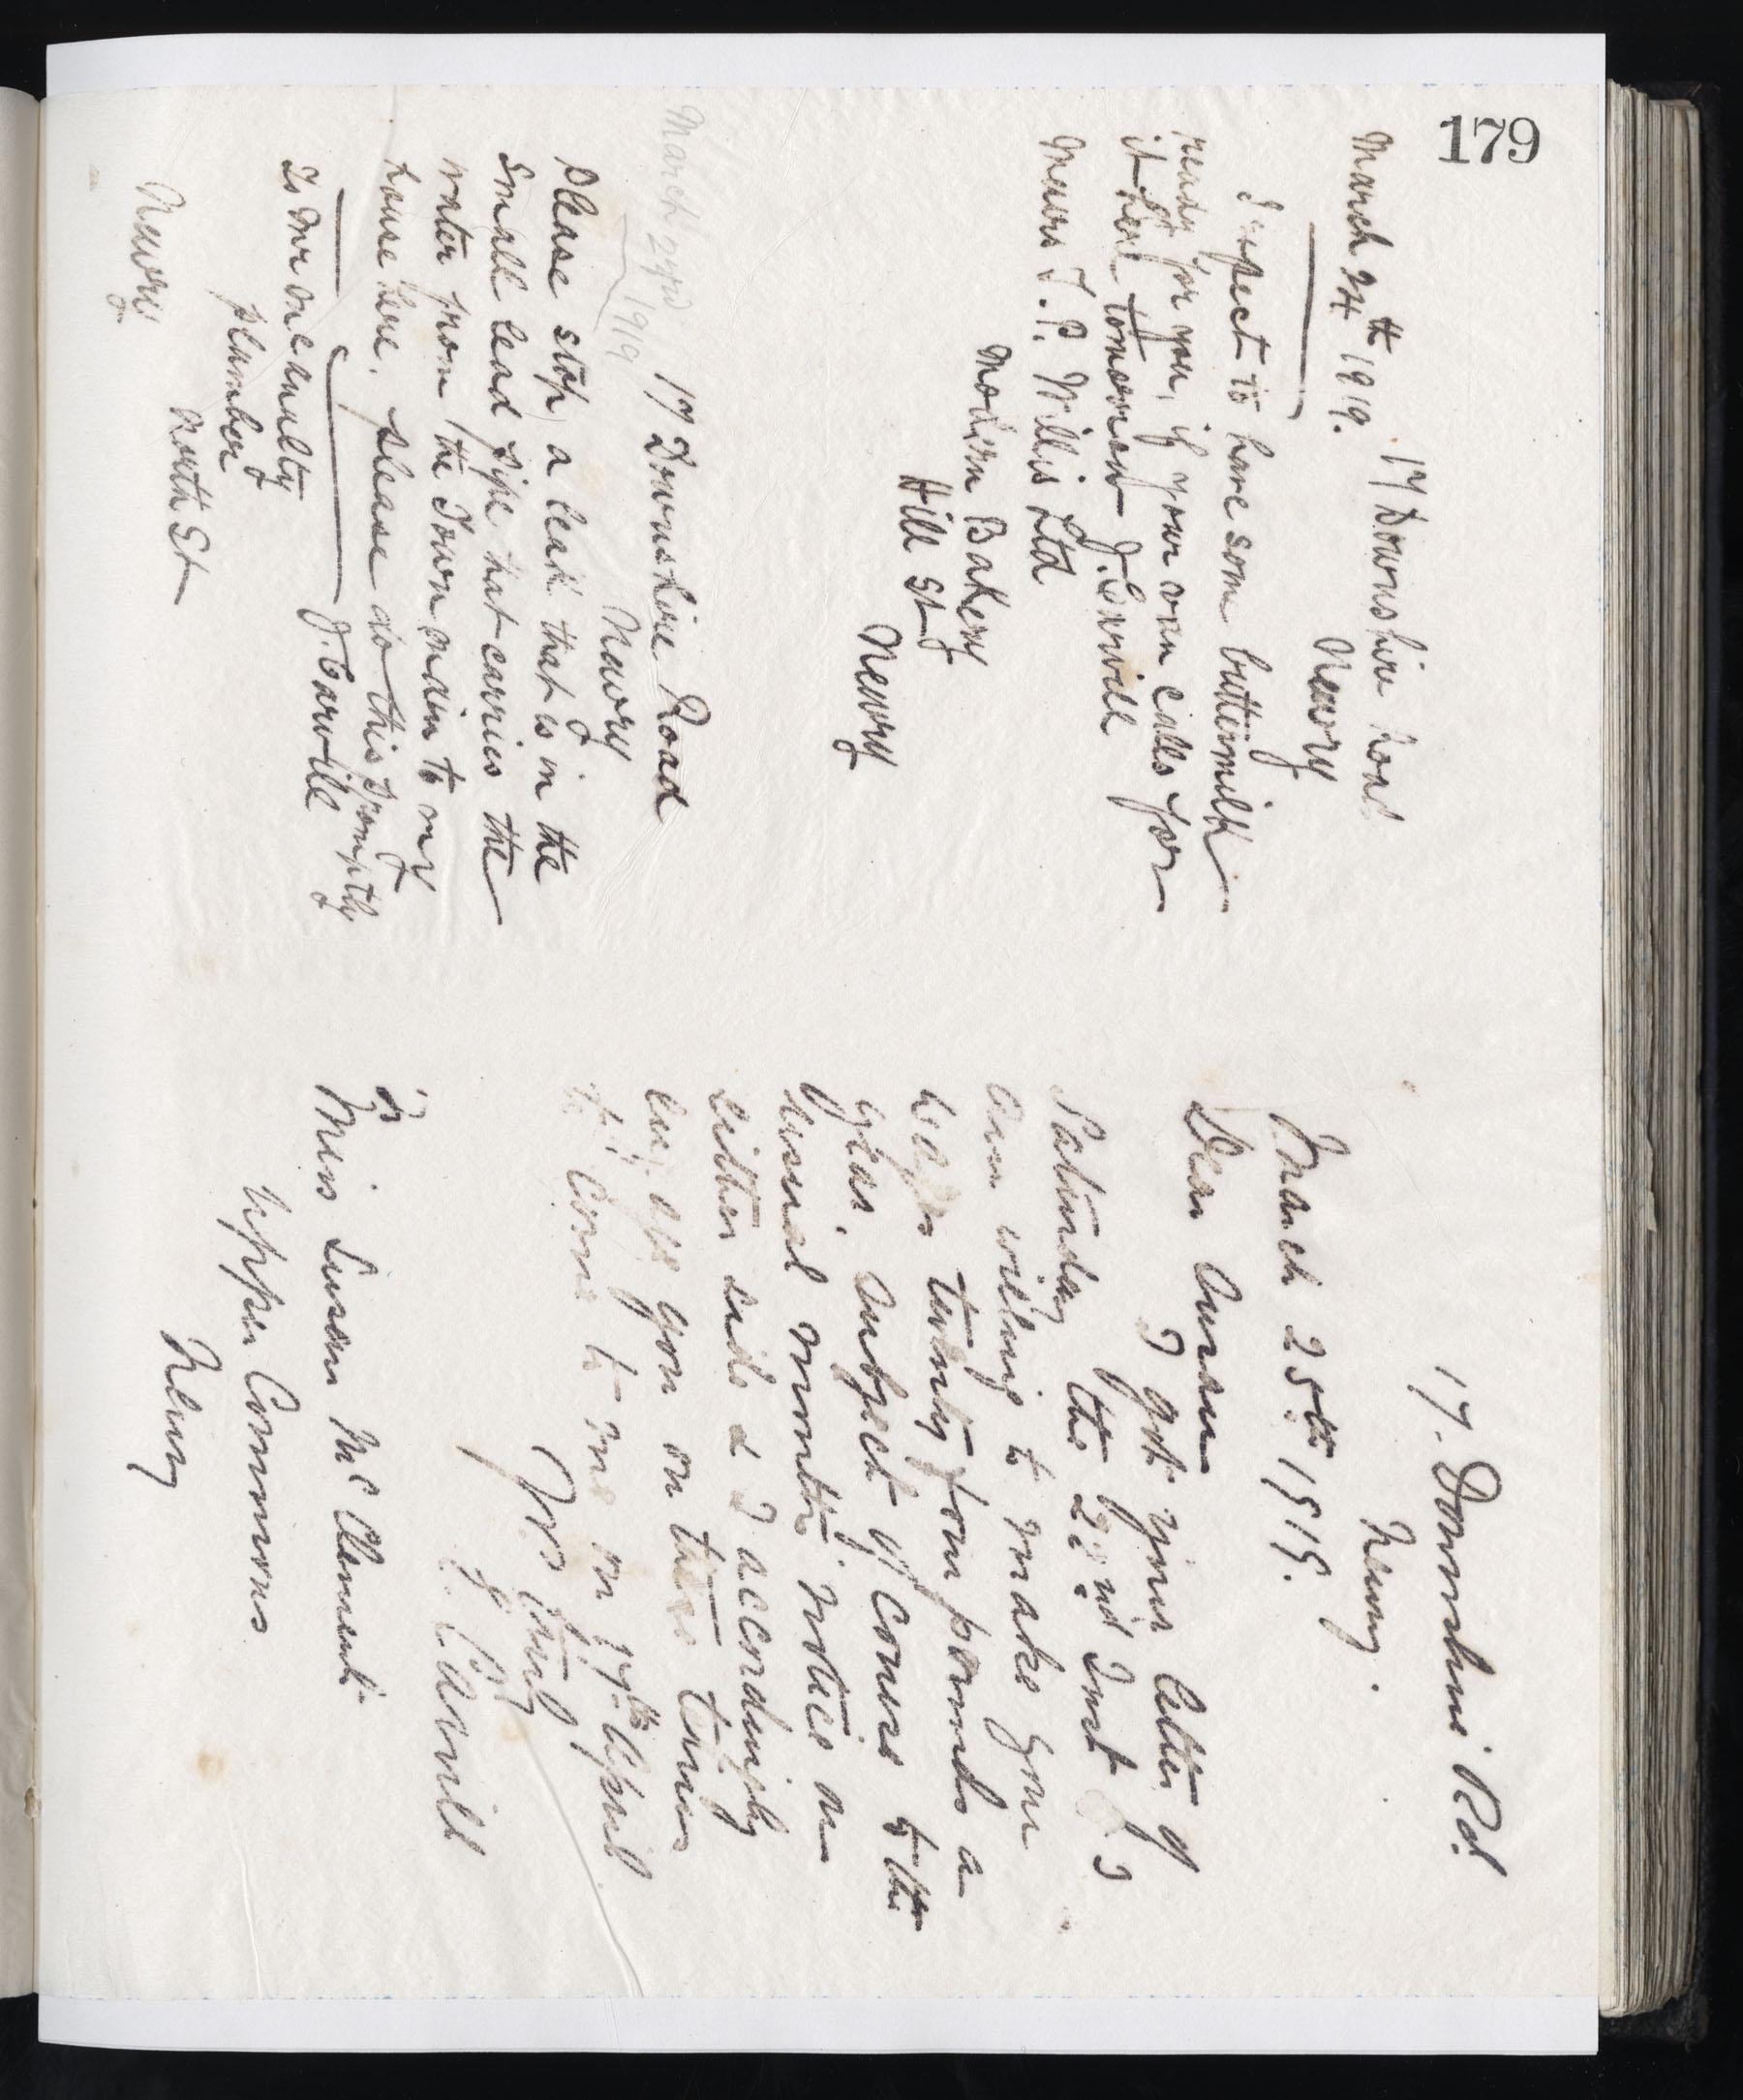 179
17 Downshire Road
Newry
March 24th 1919.
I expect to have some buttermilk
ready for you, if your van calls for
it here tomorrow J. Carvill
Messrs J. P. Willis Ltd
Modern Bakery
Hill St
Newry
March 23rd 1919
17 Downshire Road
Newry
Please stop a leak that is in the
small lead pipe that carries the
water from the Town main to my
house here, please do this promptly
J. Carvill
To Mr McAnulty
plumber
North St
Newry
17. Downshire Rd.
Newry.
March 25th 1919.
Dear Susan
I got your letter of
Saturday the 22nd Inst & I
am willing to make your
wages twenty four pounds a
year, subject of course to the
usual months notice on
either side & I accordingly
engage you on these terms
to come to me on 17th April
Yrs truly
J. Carvill
To
Miss Susan McClement
Upper Commons
Newry